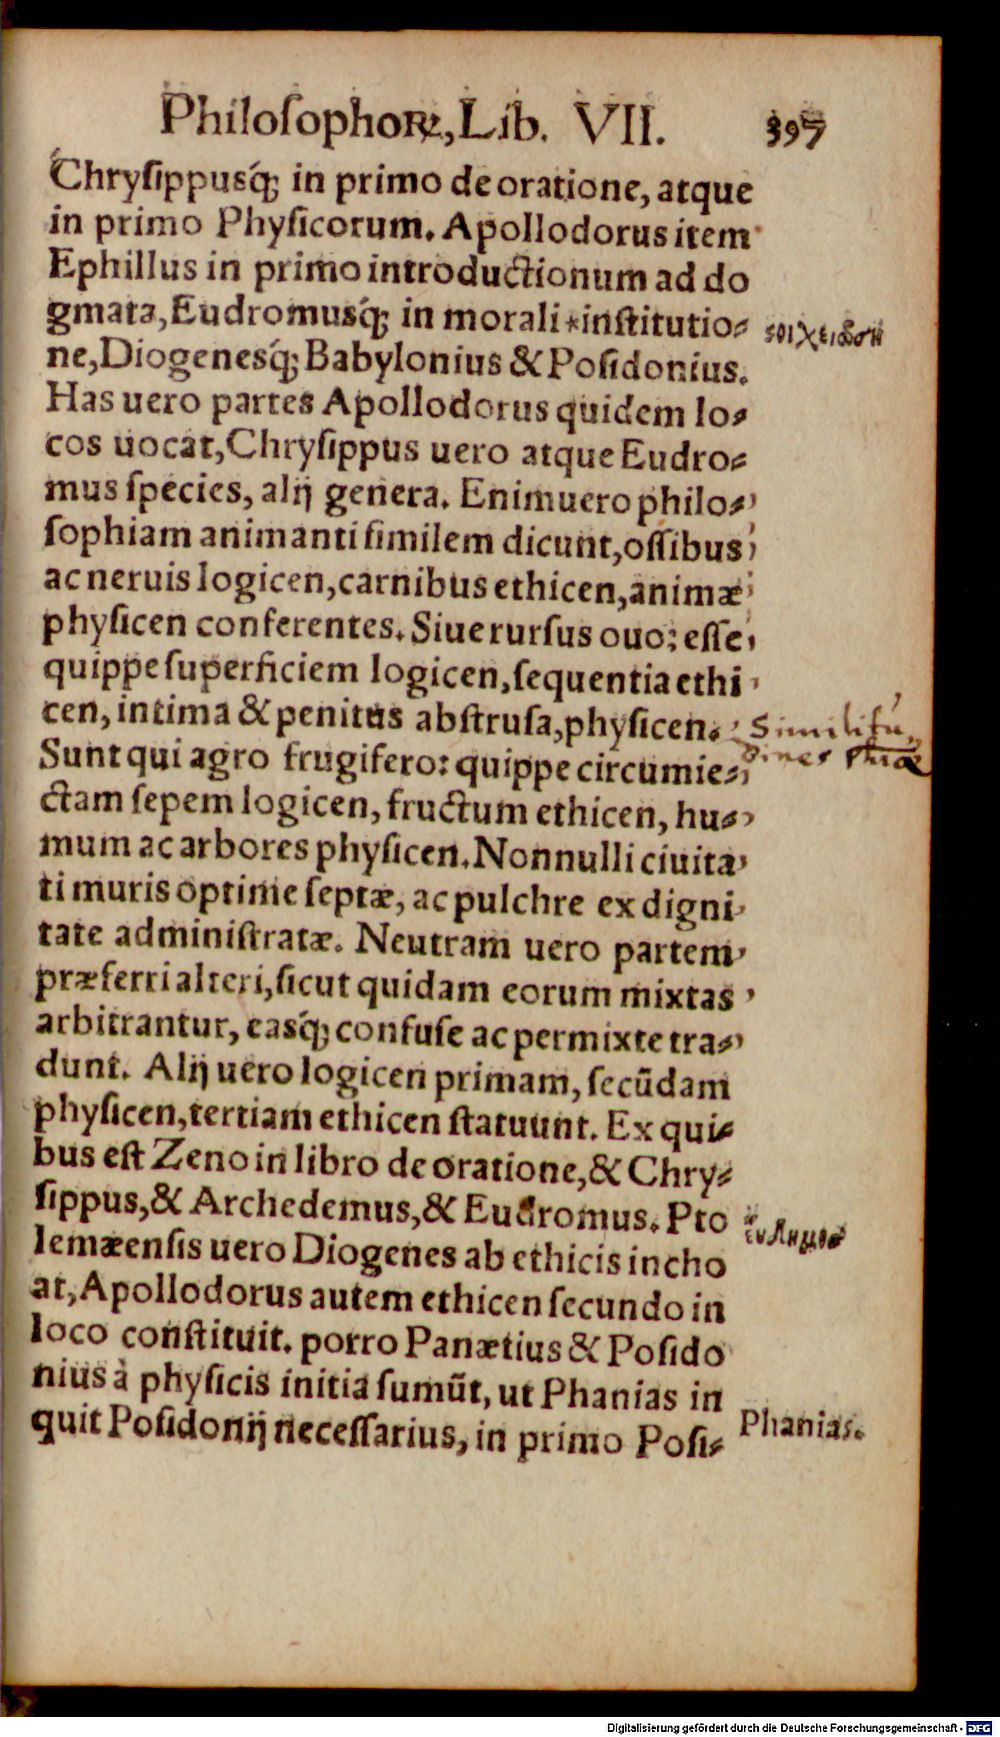 Philoſophoꝝ, Lib. VII. 397
Chryſippusq́; in primo de oratione, atque
in primo Phyſicorum. Apollodorus item
Ephillus in primo introductionum ad do
gmata, Eudromusq́; in morali *inſtitutio⸗
ne, Diogenesq́; Babylonius & Poſidonius.
Has uero partes Apollodorus quidem lo⸗
cos uocat, Chryſippus uero atque Eudro⸗
mus ſpecies, alij genera. Enimuero philo⸗
ſophiam animanti ſimilem dicunt, oſſibus
ac neruis logicen, carnibus ethicen, animæ
phyſicen conferentes. Siue rurſus ouo: eſſe
quippe ſuperficiem logicen, ſequentia ethi
cen, intima & penitus abſtruſa, phyſicen.
Similitu⸗
dines phiæ
Sunt qui agro frugifero: quippe circumie⸗
ctam ſepem logicen, fructum ethicen, hu⸗
mum ac arbores phyſicen. Nonnulli ciuita
ti muris optime ſeptæ, ac pulchre ex digni
tate adminiſtratæ. Neutram uero partem
præferri alteri, ſicut quidam eorum mixtas
arbitrantur, easq́; confuſe ac permixte tra⸗
dunt. Alij uero logicen primam, ſecūdam
phyſicen, tertiam ethicen ſtatuunt. Ex qui⸗
bus eſt Zeno in libro de oratione, & Chry⸗
ſippus, & Archedemus, & Eudromus. Pto
lemæenſis uero Diogenes ab ethicis incho
at, Apollodorus autem ethicen ſecundo in
loco conſtituit. porro Panætius & Poſido
nius à phyſicis initia ſumūt, ut Phanias in
quit Poſidonij neceſſarius, in primo Poſi⸗
Phanias.
Digitalisierung gefördert durch die Deutsche Forschungsgemeinschaft - DFG